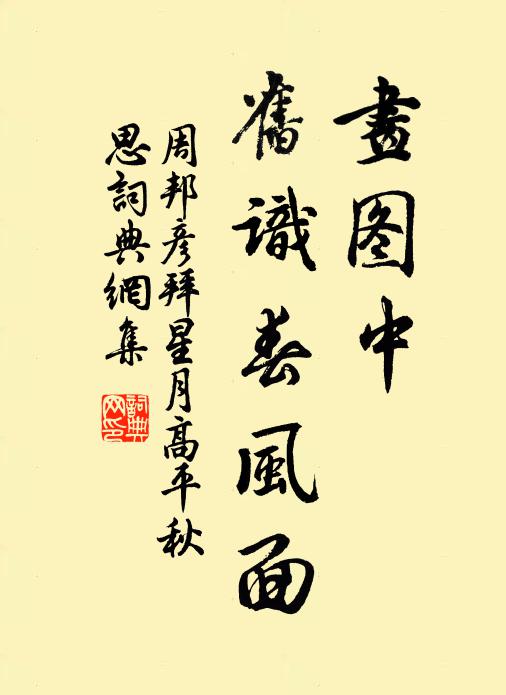 畫图中
舊識春風面
周邦彦拜星月高平秋
思詞典網集
詞典
网印